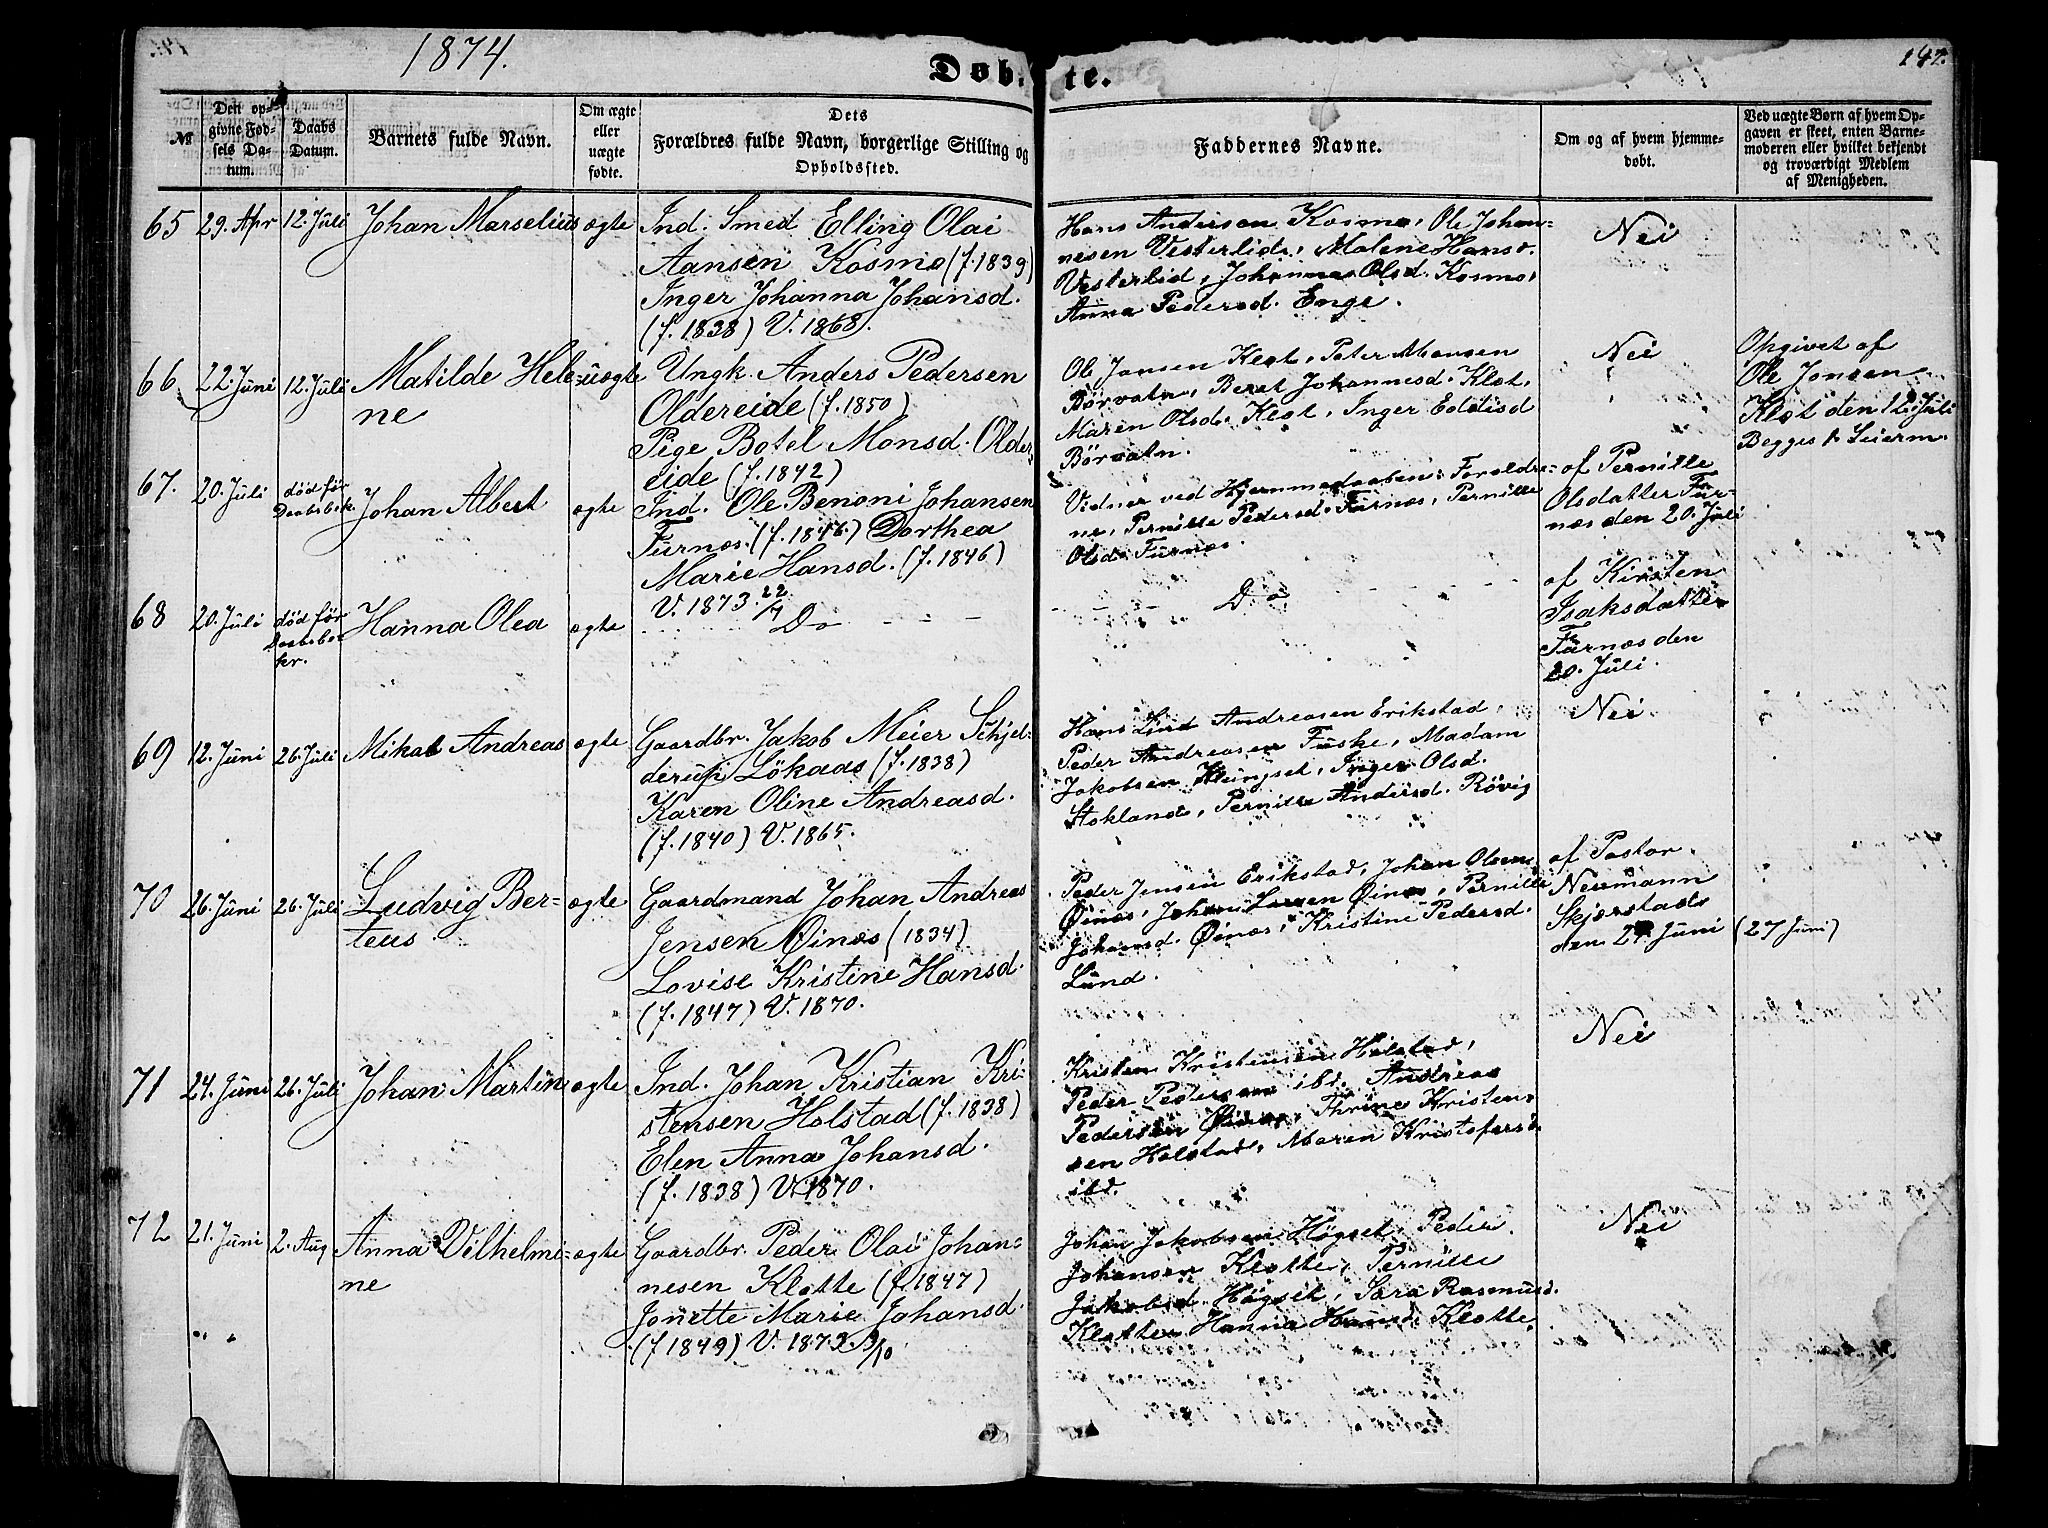 1874.
Døb te.
147.
№
Den op-
givne Fød-
sels Da-
tum.
Daabs
Datum.
Barnets fulde Navn.
Om ægte
eller
uægte
fødte.
Dets
Forældres fulde Navn, borgerlige Stilling og
Opholdssted.
Faddernes Navne.
Om og af hvem hjemme-
døbt.
Ved uægte Børn af hvem Op-
gaven er skeet, enten Barne-
moderen eller hvilket bekjendt
og troværdigt Medlem
af Menigheden.
65
29. Apr
12. Juli
Johan Marselius
ægte
Ind. Smed Elling Olai
Aansen Kosmo (f. 1839)
Inger Johanna Johansd.
(f. 1838) V. 1868.
Hans Andersen Kosmo, Ole Johan-
nesen Vesterlid, Malene Hansd.
Vesterlid, Johanna Olsd. Kosmo,
Anna Pedersd. Enge.
Nei
66
22. Juni
12. Juli
Matilde Hele-
ne
uægte
Ungk. Anders Pedersen
Oldereide (f. 1850)
Pige Botel Monsd. Older-
eide (f. 1842)
Ole Jonsen Kløt, Peter Monsen
Børvatn, Beret Johannesd. Kløt,
Maren Olsd. Kløt, Inger Eddisd
Børvatn.
Nei
Opgivet af
Ole Jonsen
Kløt den 12. Juli
Begges 1. Leierm.
67.
20. Juli
død før
Daabsbek.
Johan Albert
ægte
Ind. Ole Benoni Johansen
Furnæs. (f. 1846) Dorthea
Marie Hansd. (f. 1846)
V. 1873 22/7
Vidner ved Hjemmedaaben: Forældre-
ne, Pernille Pedersd. Furnæs, Pernille
Olsd. Furnæs.
af Pernille
Olsdatter Fur-
næs den 20. Juli
68
20. Juli
død før
Daabsbe-
kr.
Hanna Olea
ægte
Do
Do
af Kirsten
Isaksdatter
Furnæs den
20. Juli.
69
12. Juni
26. Juli
Mikal Andreas
ægte
Gaardbr. Jakob Meier Schjel-
derup Løkaas (f. 1838)
Karen Oline Andreasd.
(f. 1840) V. 1865.
Hans Lind Andreasen Erikstad,
Peder Andreasen Fuske, Madam
Jakobsen Klungset, Inger Olsd.
Stokland, Pernille Andersd. Røvig
Nei
70
26. Juni
26. Juli
Ludvig Ber-
teus
ægte
Gaardmand Johan Andreas
Jensen Øinæs (1834)
Lovise Kristine Hansd.
(f. 1847) V. 1870.
Peder Jensen Erikstad, Johan Olsen
Øinæs, Johan Larsen Øinæs, Pernille
Johansd. Øinæs, Kristine Pedersd.
Lund.
af Pastor
Neumann
Skjerstad
den 27 Juni (27 Juni)
71
24. Juni
26. Juli
Johan Martin
ægte
Ind. Johan Kristian Kri-
stensen Holstad (f. 1838)
Elen Anna Johansd.
(f. 1838) V. 1870.
Kristen Kristensen Holstad,
Peder Pedersen ibd. Andreas
Pedersen Øinæs, Thrine Kristen-
sen Holstad, Maren Kristofersd.
ibd.
Nei
72
21. Juni
2. Aug
Anna Vilhelmi-
ne
ægte
Gaardbr. Peder Olai Johan-
nesen Kløtte (f. 1847)
Jonette Marie Johansd.
(f 1849) V. 1873. 3/10
Johan Jakobsen Høgset, Peder
Johansen Kløtte, Pernille
Jakobsd. Høgset, Sara Rasmusd.
Kløtte, Hanna Hansd. Kløtte.
Nei